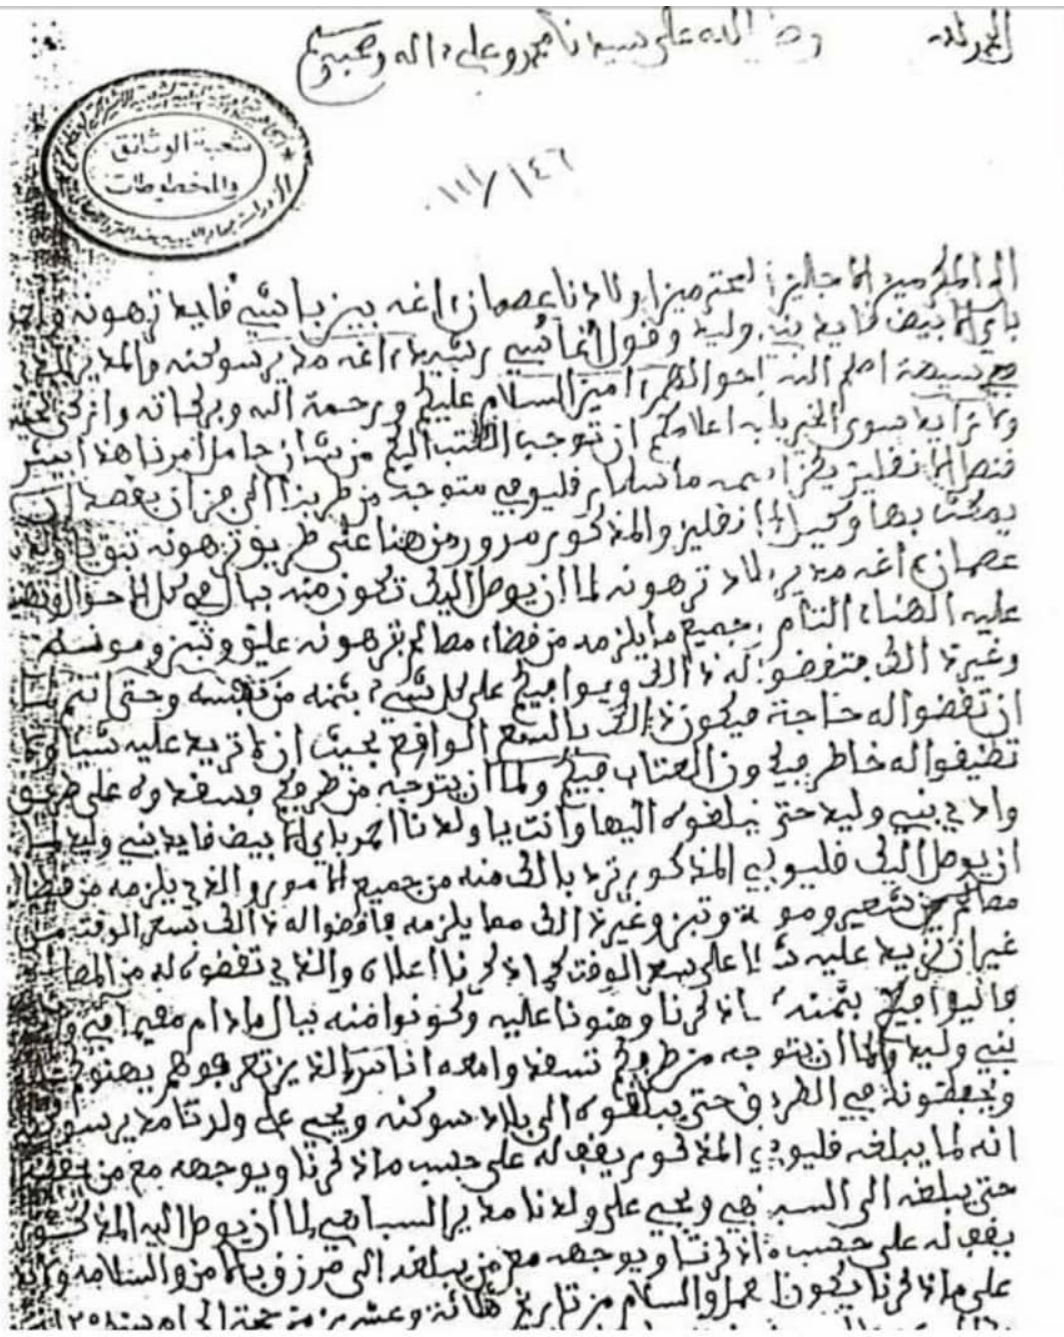 الحمد لله وصلى الله على سيدنا محمد وعلى اله وصحبه وسلم
شعبة الوثائق
والمخطوطات
١٤٦/١١١
الى المكرمين الاجلين المحترمين اولادنا عصمان اغه بيزباشي قايد ترهونه
باي الابيض قايد بني وليد وقول اغاسي رشيد اغه مدير سوكنه والمدير
اصلح الله احوالهم امين السلام عليكم ورحمة الله وبركاته وازكى
ولا زايد سوى الخير يليه اعلامكم ان توجب الكتب اليكم من شان حامل امرنا هذا
قنصل الانقليز اسمه قليوبي متوجه من طرفنا الى فزان بقصد ان
يمكث بها وكيل الانقليز والمذكور مروره من هنا على طريق ترهونه
عصمان اغه مدير بلاد ترهونه لما ان يوصل اليك تكون منه ببال في كل الاحوال
عليه الهناء التام جميع ما يلزمه من قضاء مصالح ترهونه علق وتبن ومونه
وغير ذالك فتقضو له ذالك ويوافيكم على كل شيء بثمنه من وحتى
ان تقضوا له حاجة فيكون ذالك بالسعر الواقع بحيث ان لا تزيد عليه شيئا ولا
تضيقوا له خاطر فيكون العتاب فيكم ولما ان يتوجه من طرفكم تسفدوه على طريق
وادي بني وليد حتى يبلغوه اليها وانت يا ولدنا احمد باي الابيض قايد بني وليد
ان يوصل اليك قليوبي المذكور ترد بالك منه من جميع الامور والذي يلزمه من قضاء
مصالح من شعير ومونة وتبن وغير ذالك مما يلزمه فاقضوا له ذالك بسعر الوقت من
غير ان تزيد عليه الا على سعر الوقت كما ذكرنا اعلاه والذي تقضوه له من
فاليوافيكم بثمنه ذكرنا وهنونا عليه وكونوا منه ببال مادام مقيم في
بني وليد ولما ان يتوجه من طرفكم تسفدوا معه اناس الذين تعرفوهم يهنوه
ويحفظونه في الطريق حتى يبلغوه الى بلاد سوكنه ويجب على ولدنا مدير سوكنه
انه لما يبلغه قليوبي المذكور يقف له على حسب ما ذكرنا ويوجهه مع من
حتى يبلغه الى السبهه ويجب على ولدنا مدير السباهي لما ان يوصل اليه المذكور
يقف له على حسب ما ذكرنا ويوجهه مع من يبلغه الى مرزق بالامن والسلامه
على ما ذكرنا يكون العمل والسلام من تاريخ ثمانية وعشرين من حجة الحرام سنة